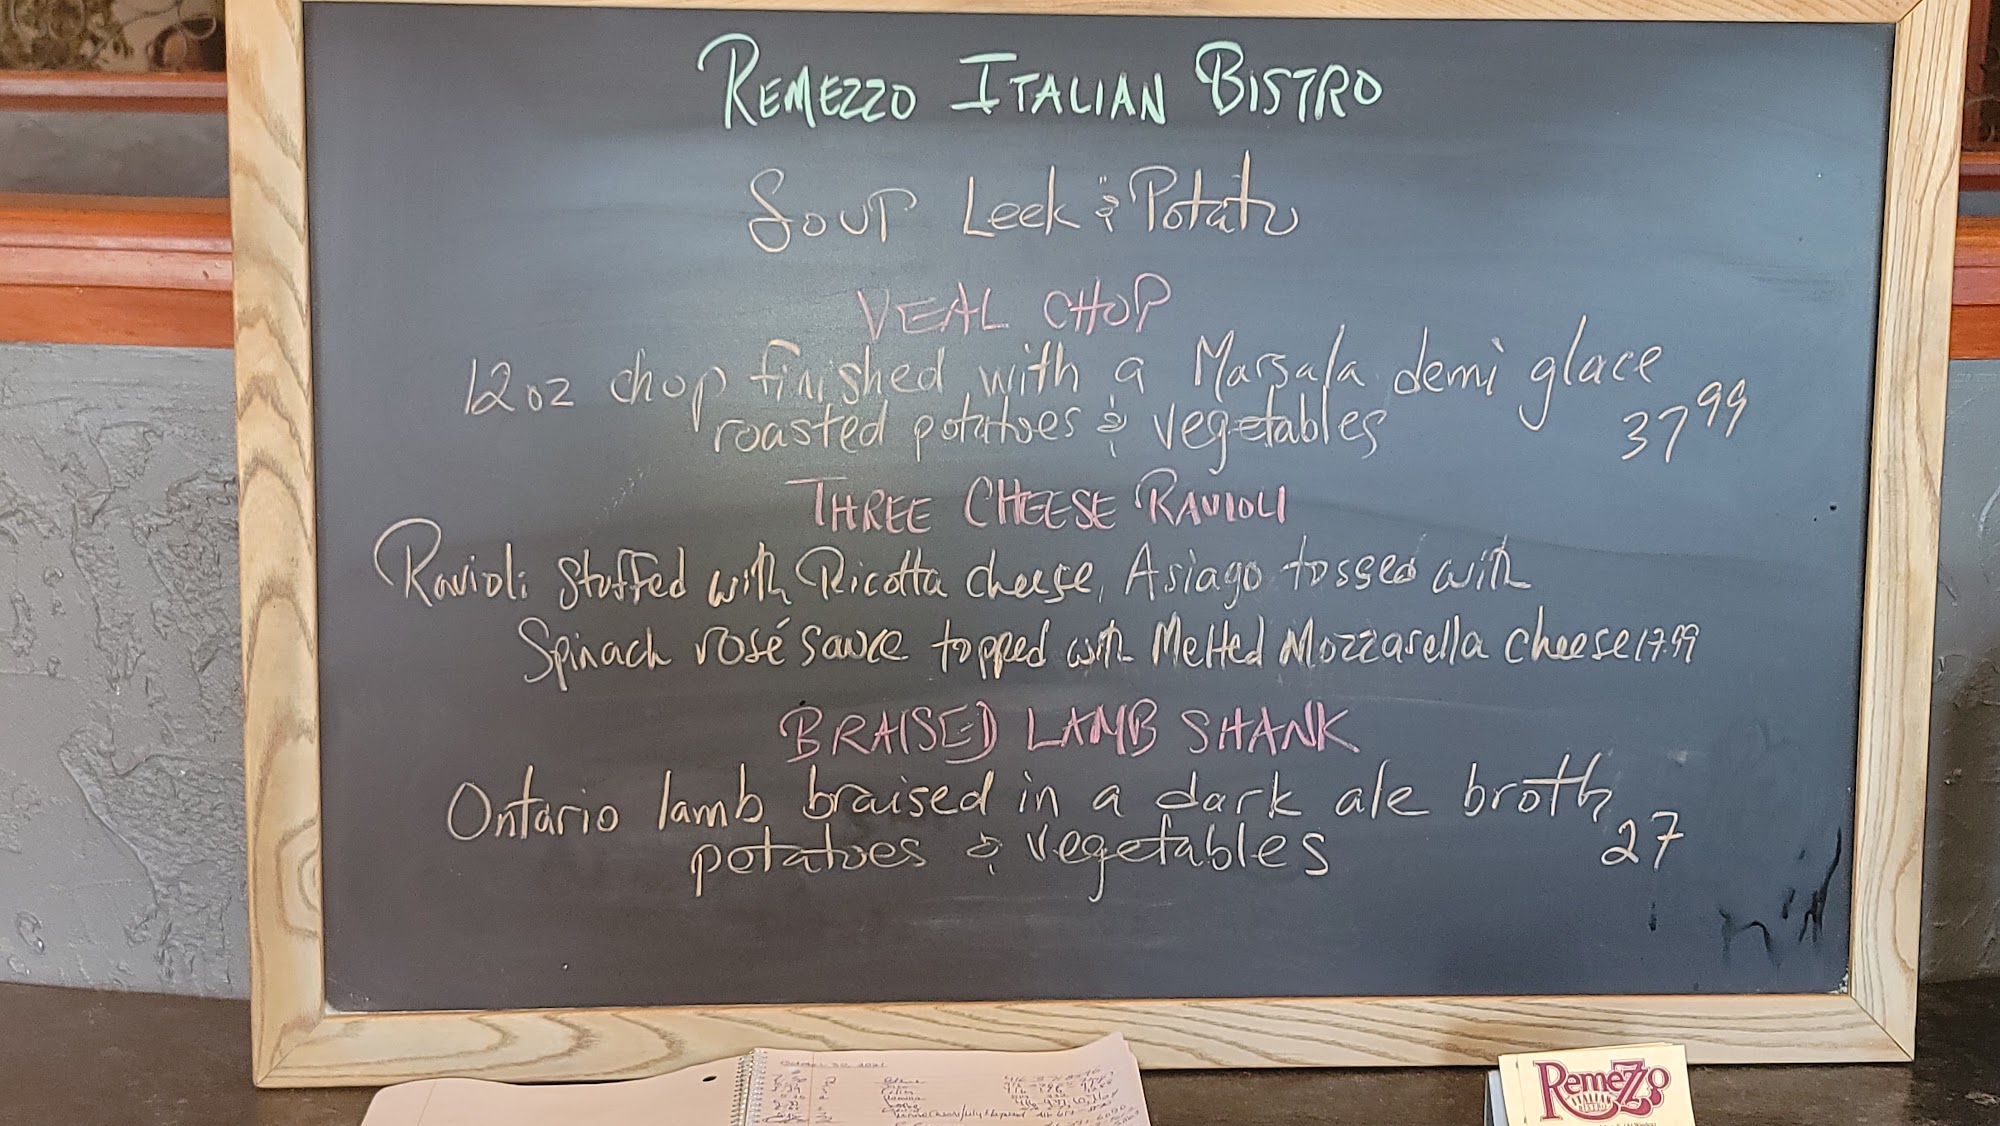 REMEZZO ITALIAN BISTRO
SOUP Leek & Potato
VEAL CHOP
12oz chop finished with a Marsala demi glace
roasted potatoes & vegetables 37.99
THREE CHEESE RAVIOLI
Ravioli stuffed with Ricotta cheese, Asiago tossed with
Spinach rosé sauce topped with Melted Mozzarella cheese 17.99
BRAISED LAMB SHANK
Ontario lamb braised in a dark ale broth
potatoes & vegetables 27
RemeZZo
ITALIAN
BISTRO